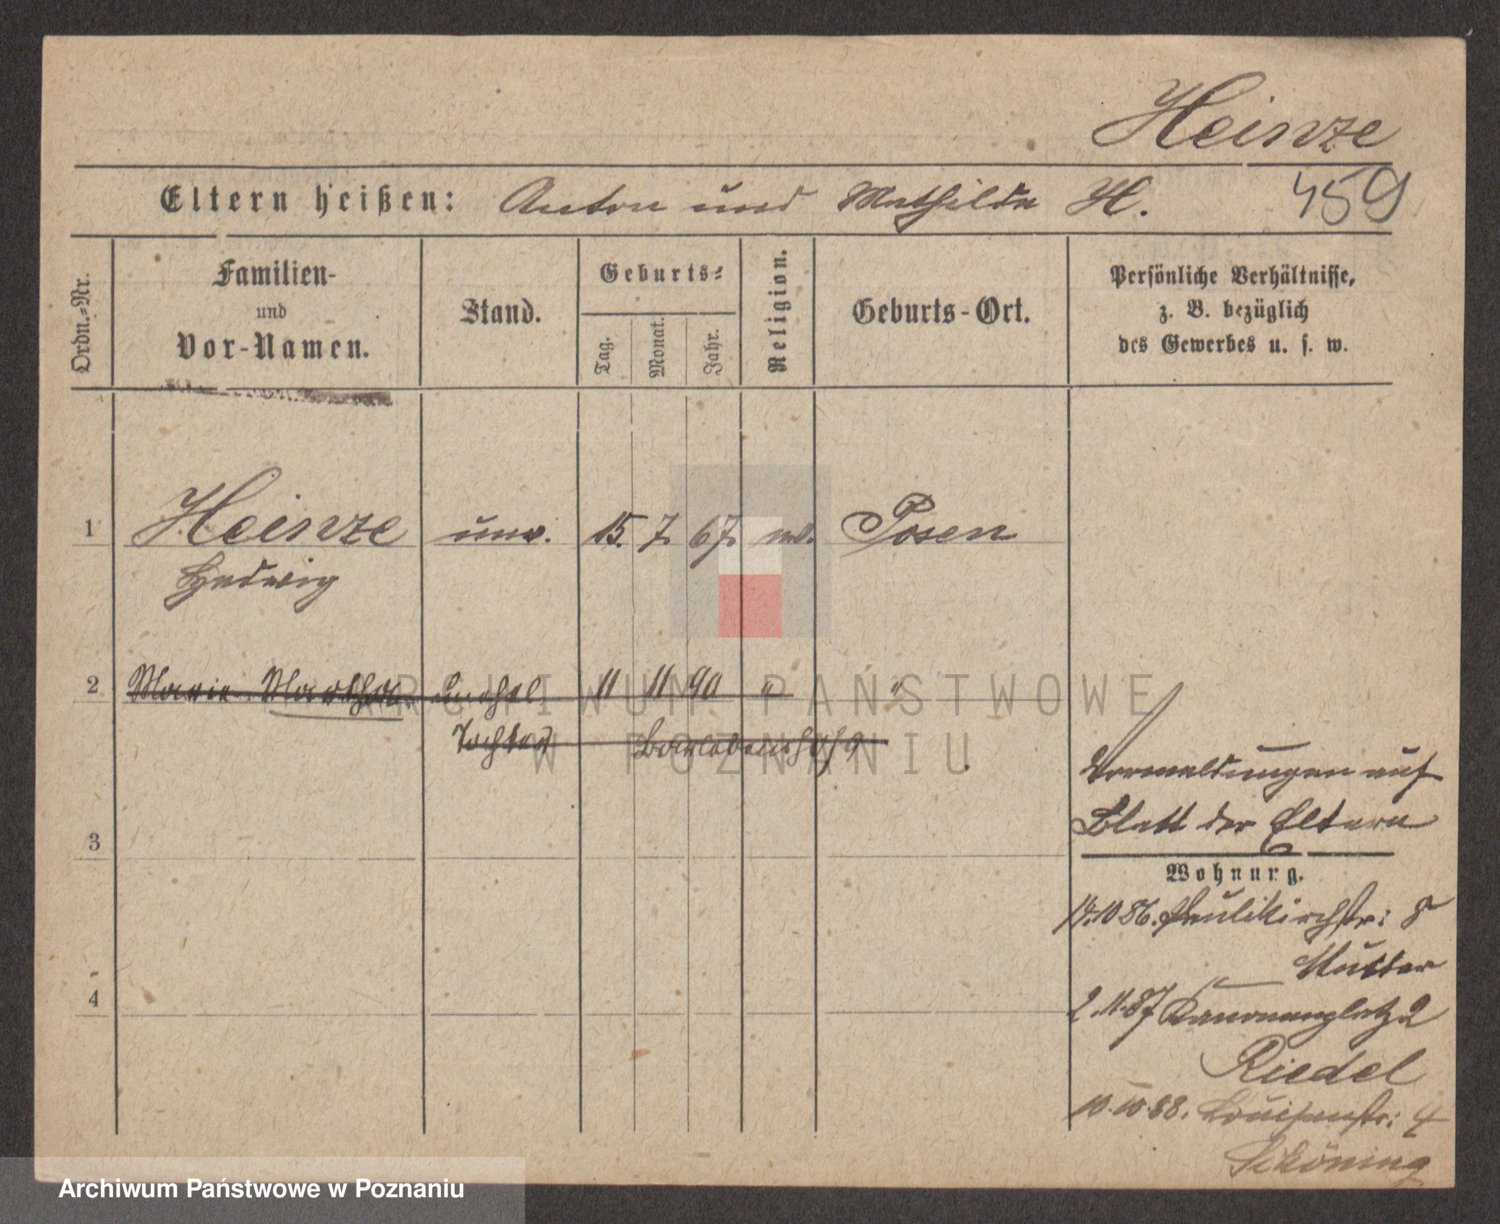 Heinze
459
Eltern heißen: Anton und Mathilde H.
Ordn.=Nr.
Familien-
und
Vor-Namen.
Stand.
Geburts=
Tag.
Monat.
Jahr.
Religion.
Geburts-Ort.
Persönliche Verhältnisse,
z. B. bezüglich
des Gewerbes u. s. w.
1 Heinze unv. 15. 7. 67. Posen
Hedwig
2 Marie Martha unehel 11 11 90 " "
Tochter
ARCHIWUM PAŃSTWOWE
W POZNANIU
3
4
auf
Blatt der Eltern
Wohnung.
19.10 86. Paulikirchstr: 8
Mutter
2.11.87 Kanonenplatz 2
Riedel
10.10.88. Louisenstr: 4
Schöning
Archiwum Państwowe w Poznaniu